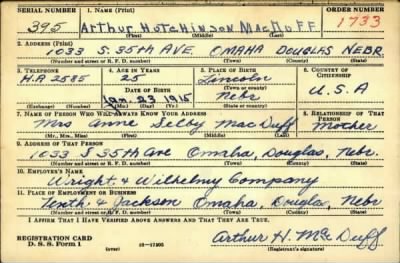 SERIAL NUMBER 1. NAME (Print) ORDER NUMBER
395 Arthur Hutchinson MacDuff 1733
(First) (Middle) (Last)
2. ADDRESS (Print)
1033 S. 35TH AVE. OMAHA DOUGLAS NEBR.
(Number and street or R. F. D. number) (Town) (County) (State)
3. TELEPHONE 4. AGE IN YEARS 5. PLACE OF BIRTH 6. COUNTRY OF CITIZENSHIP
HA 2585 25 Lincoln
DATE OF BIRTH (Town or county)
Jan. 23 1915 Nebr U.S.A
(Exchange) (Number) (Mo.) (Day) (Yr.) (State or country)
7. NAME OF PERSON WHO WILL ALWAYS KNOW YOUR ADDRESS 8. RELATIONSHIP OF THAT PERSON
Mrs Anne Selby MacDuff Mother
(Mr., Mrs., Miss) (First) (Middle) (Last)
9. ADDRESS OF THAT PERSON
1033 S 35th Ave Omaha, Douglas, Nebr.
(Number and street or R. F. D. number) (Town) (County) (State)
10. EMPLOYER'S NAME
Wright & Wilhelmy Company
11. PLACE OF EMPLOYMENT OR BUSINESS
Tenth & Jackson Omaha, Douglas, Nebr
(Number and street or R. F. D. number) (Town) (County) (State)
I AFFIRM THAT I HAVE VERIFIED ABOVE ANSWERS AND THAT THEY ARE TRUE.
REGISTRATION CARD
D. S. S. Form 1 16-17105 Arthur H. MacDuff
(Registrant's signature)